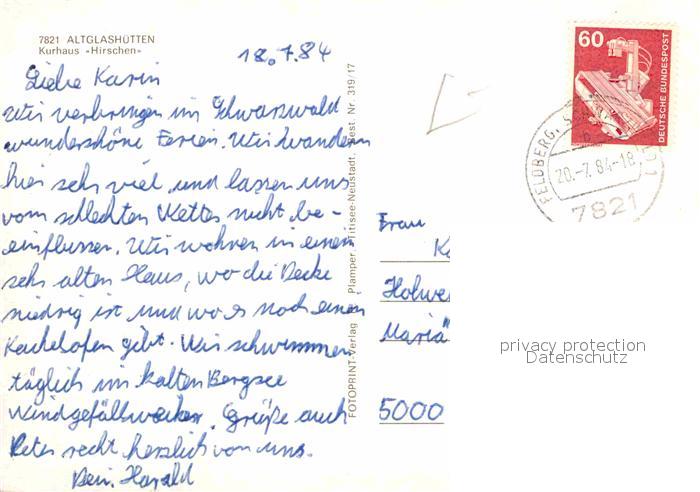 7821 ALTGLASHÜTTEN
Kurhaus «Hirschen»
18.7.84
Liebe Karin
Wir verbringen im Schwarzwald
wunderschöne Ferien. Wir wandern
hier sehr viel und lassen uns
vom schlechten Wetter nicht be-
einflussen. Wir wohnen in einem
sehr alten Haus, wo die Decke
niedrig ist und wo es noch einen
Kachelofen gibt. Wir schwimmen
täglich im kalten Bergsee
Windgefällweiher. Grüße auch
Peter recht herzlich von uns.
Dein Harald
FOTOPRINT-Verlag Plamper, Titisee-Neustadt, Best. Nr. 319/17
60
DEUTSCHE BUNDESPOST
FELDBERG, S
20.-7.84-18
7821
Frau
K
Holwe
Maria
5000
privacy protection
Datenschutz